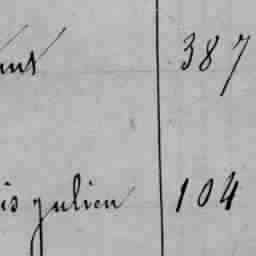 387
is julien 104